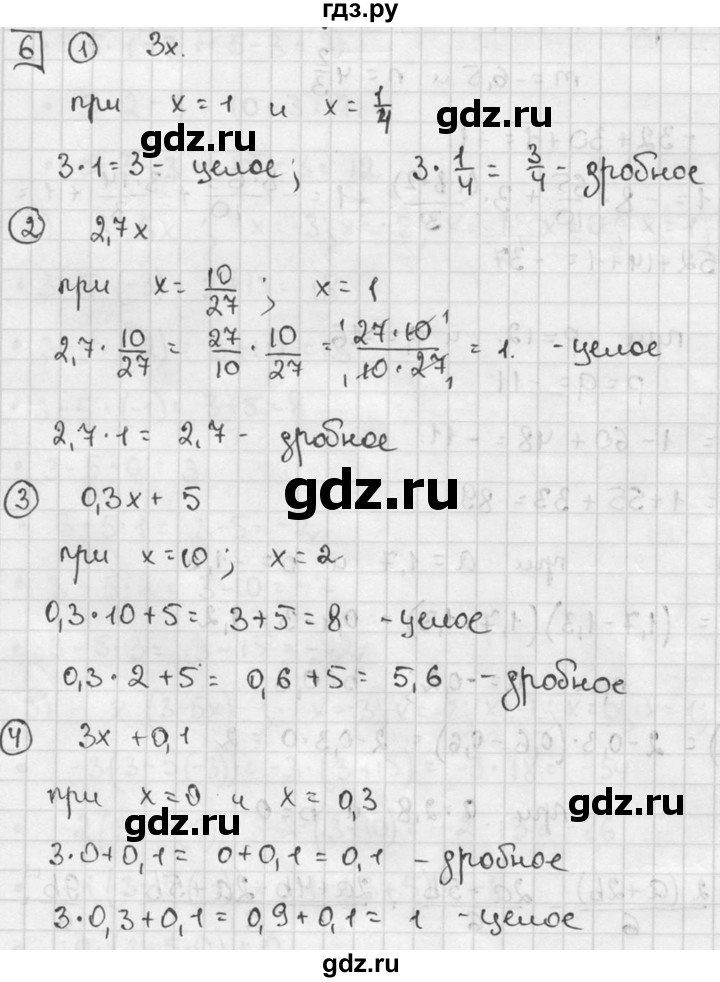 гдз.ру
6 1 3x.
при x = 1 и x = 1/4
gdz.ru gdz.ru
3·1=3 - целое; 3·1/4 = 3/4 - дробное
2 2,7x
при x = 10/27; x = 1
2,7·10/27 = 27/10·10/27 = 27·10/10·27 = 1. - целое
gdz.ru
2,7·1 = 2,7 - дробное
gdz.ru
3 0,3x + 5
при x=10; x=2
gdz.ru
0,3·10+5 = 3+5 = 8 - целое
0,3·2+5 = 0,6+5 = 5,6 - дробное
gdz.ru
4 3x + 0,1
при x=0 и x = 0,3
gdz.ru gdz.ru
3·0+0,1 = 0+0,1 = 0,1 - дробное
3·0,3+0,1 = 0,9+0,1 = 1 - целое
gdz.ru